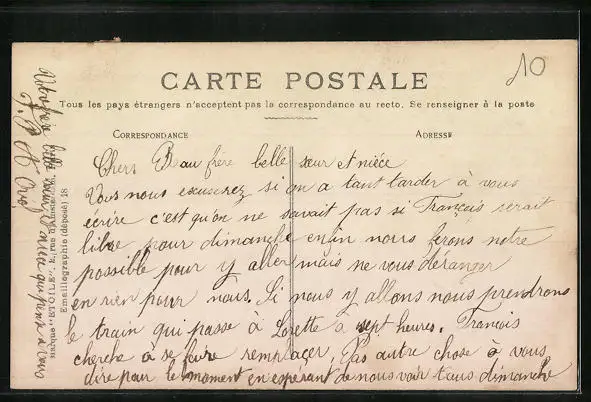 10
CARTE POSTALE
Tous les pays étrangers n'acceptent pas la correspondance au recto. Se renseigner à la poste
CORRESPONDANCE
ADRESSE
Chers Beau frère belle sœur et nièce
Vous nous excuserez si on a tant tarder à vous
écrire c'est qu'on ne savait pas si François serait
libre pour dimanche enfin nous ferons notre
possible pour y aller mais ne vous déranger
en rien pour nous. Si nous y allons nous prendrons
le train qui passe à Lorette a sept heures. François
cherche à se faire remplacer. Pas autre chose à vous
dire pour le moment en espérant de nous voir tous dimanche
Votre frère belle sœur nièce qui pense a vous
Marque "ETOILE", rue
Emaillographie (déposé) 18